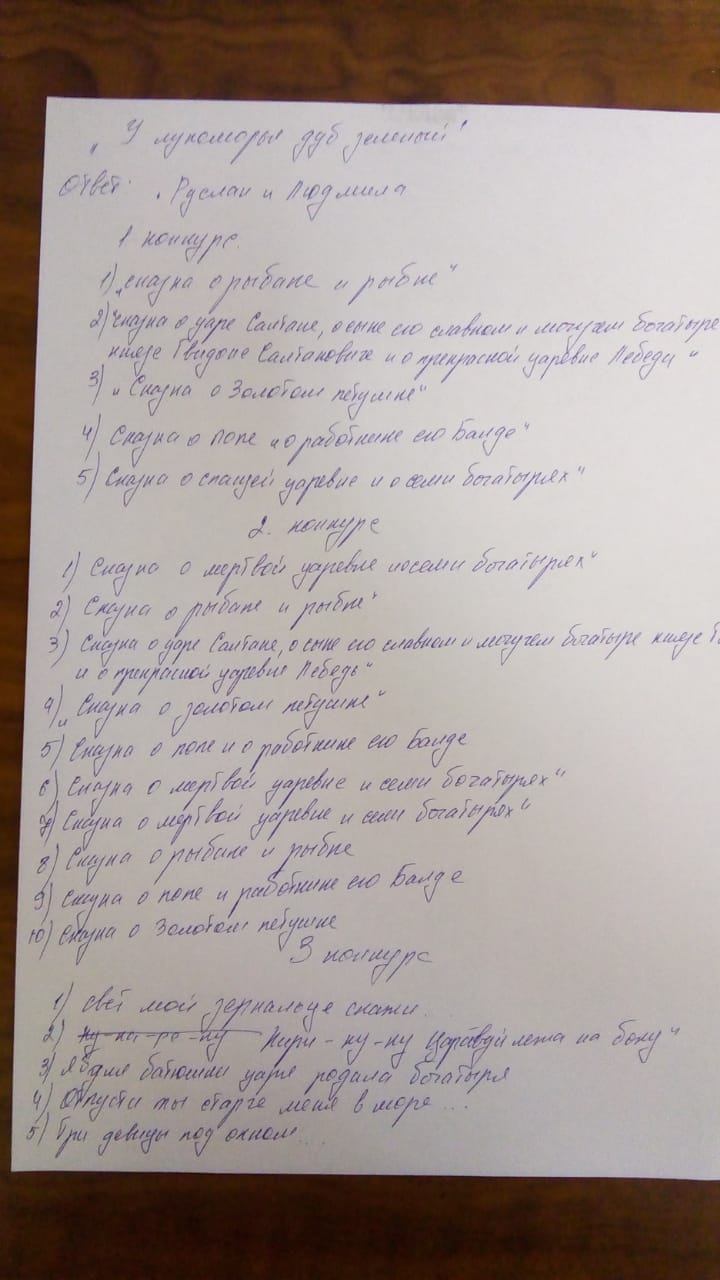 „У лукоморья дуб зеленый"
Ответ: „Руслан и Людмила
1. конкурс.
1) „Сказка о рыбаке и рыбке"
2) Сказка о царе Салтане, о сыне его славном и могучем богатыре
князе Гвидоне Салтановиче и о прекрасной царевне Лебеди"
3) „Сказка о Золотом петушке"
4) Сказка о попе и о работнике его Балде"
5) Сказка о спящей царевне и о семи богатырях"
2. конкурс
1) Сказка о мертвой царевне и о семи богатырях"
2) Сказка о рыбаке и рыбке"
3) Сказка о царе Салтане, о сыне его славном и могучем богатыре князе Г
и о прекрасной царевне Лебедь"
4) „Сказка о золотом петушке"
5) Сказка о попе и о работнике его Балде
6) Сказка о мертвой царевне и семи богатырях"
7) Сказка о мертвой царевне и семи богатырях"
8) Сказка о рыбаке и рыбке
9) Сказка о попе и работнике его Балде
10) Сказка о Золотом петушке
3 конкурс
1) Свет мой зеркальце скажи
2) Кири-ку-ку Царствуй лежа на боку"
3) Я б для батюшки царя родила богатыря
4) Отпусти ты старче меня в море...
5) Три девицы под окном...